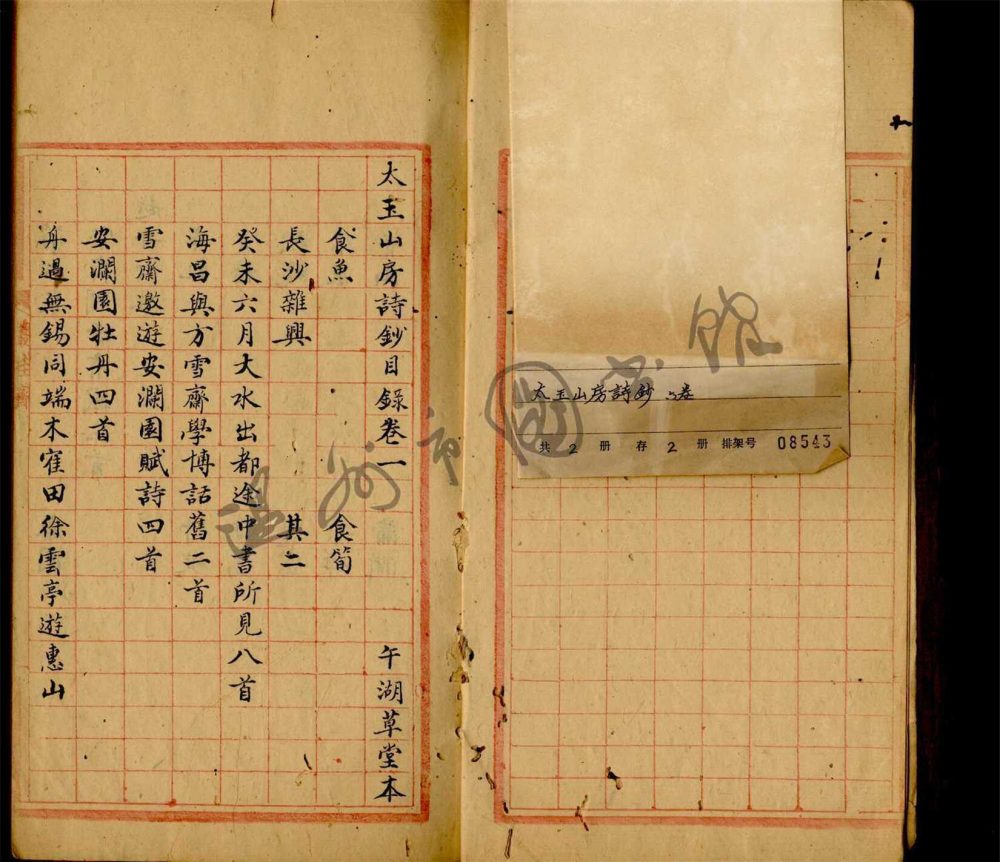 太玉山房詩鈔
共 2 册 存 2 册 排架号 08543
温州市圖书館
太玉山房詩鈔目錄卷一 午湖草堂本
食魚 食筍
長沙雜興 其二
癸未六月大水出都途中書所見八首
海昌與方雪齋學博話舊二首
雪齋邀遊安瀾園賦詩四首
安瀾園牡丹四首
舟過無錫同端木寉田徐雲亭遊惠山